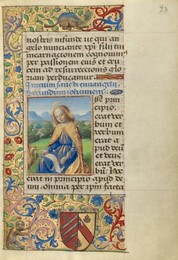 nobis infunde ut qui an
gelo nunciante xpi filii tui
incarnacionem cognouimus
per passionem eius et cru
cem ad resurrectionis glo
riam perducamur
In principio
erat ver
bum et
verbum
erat a
pud deu
et deus
erat ver
bu
erat in principio apud de
um omnia per ipm facta